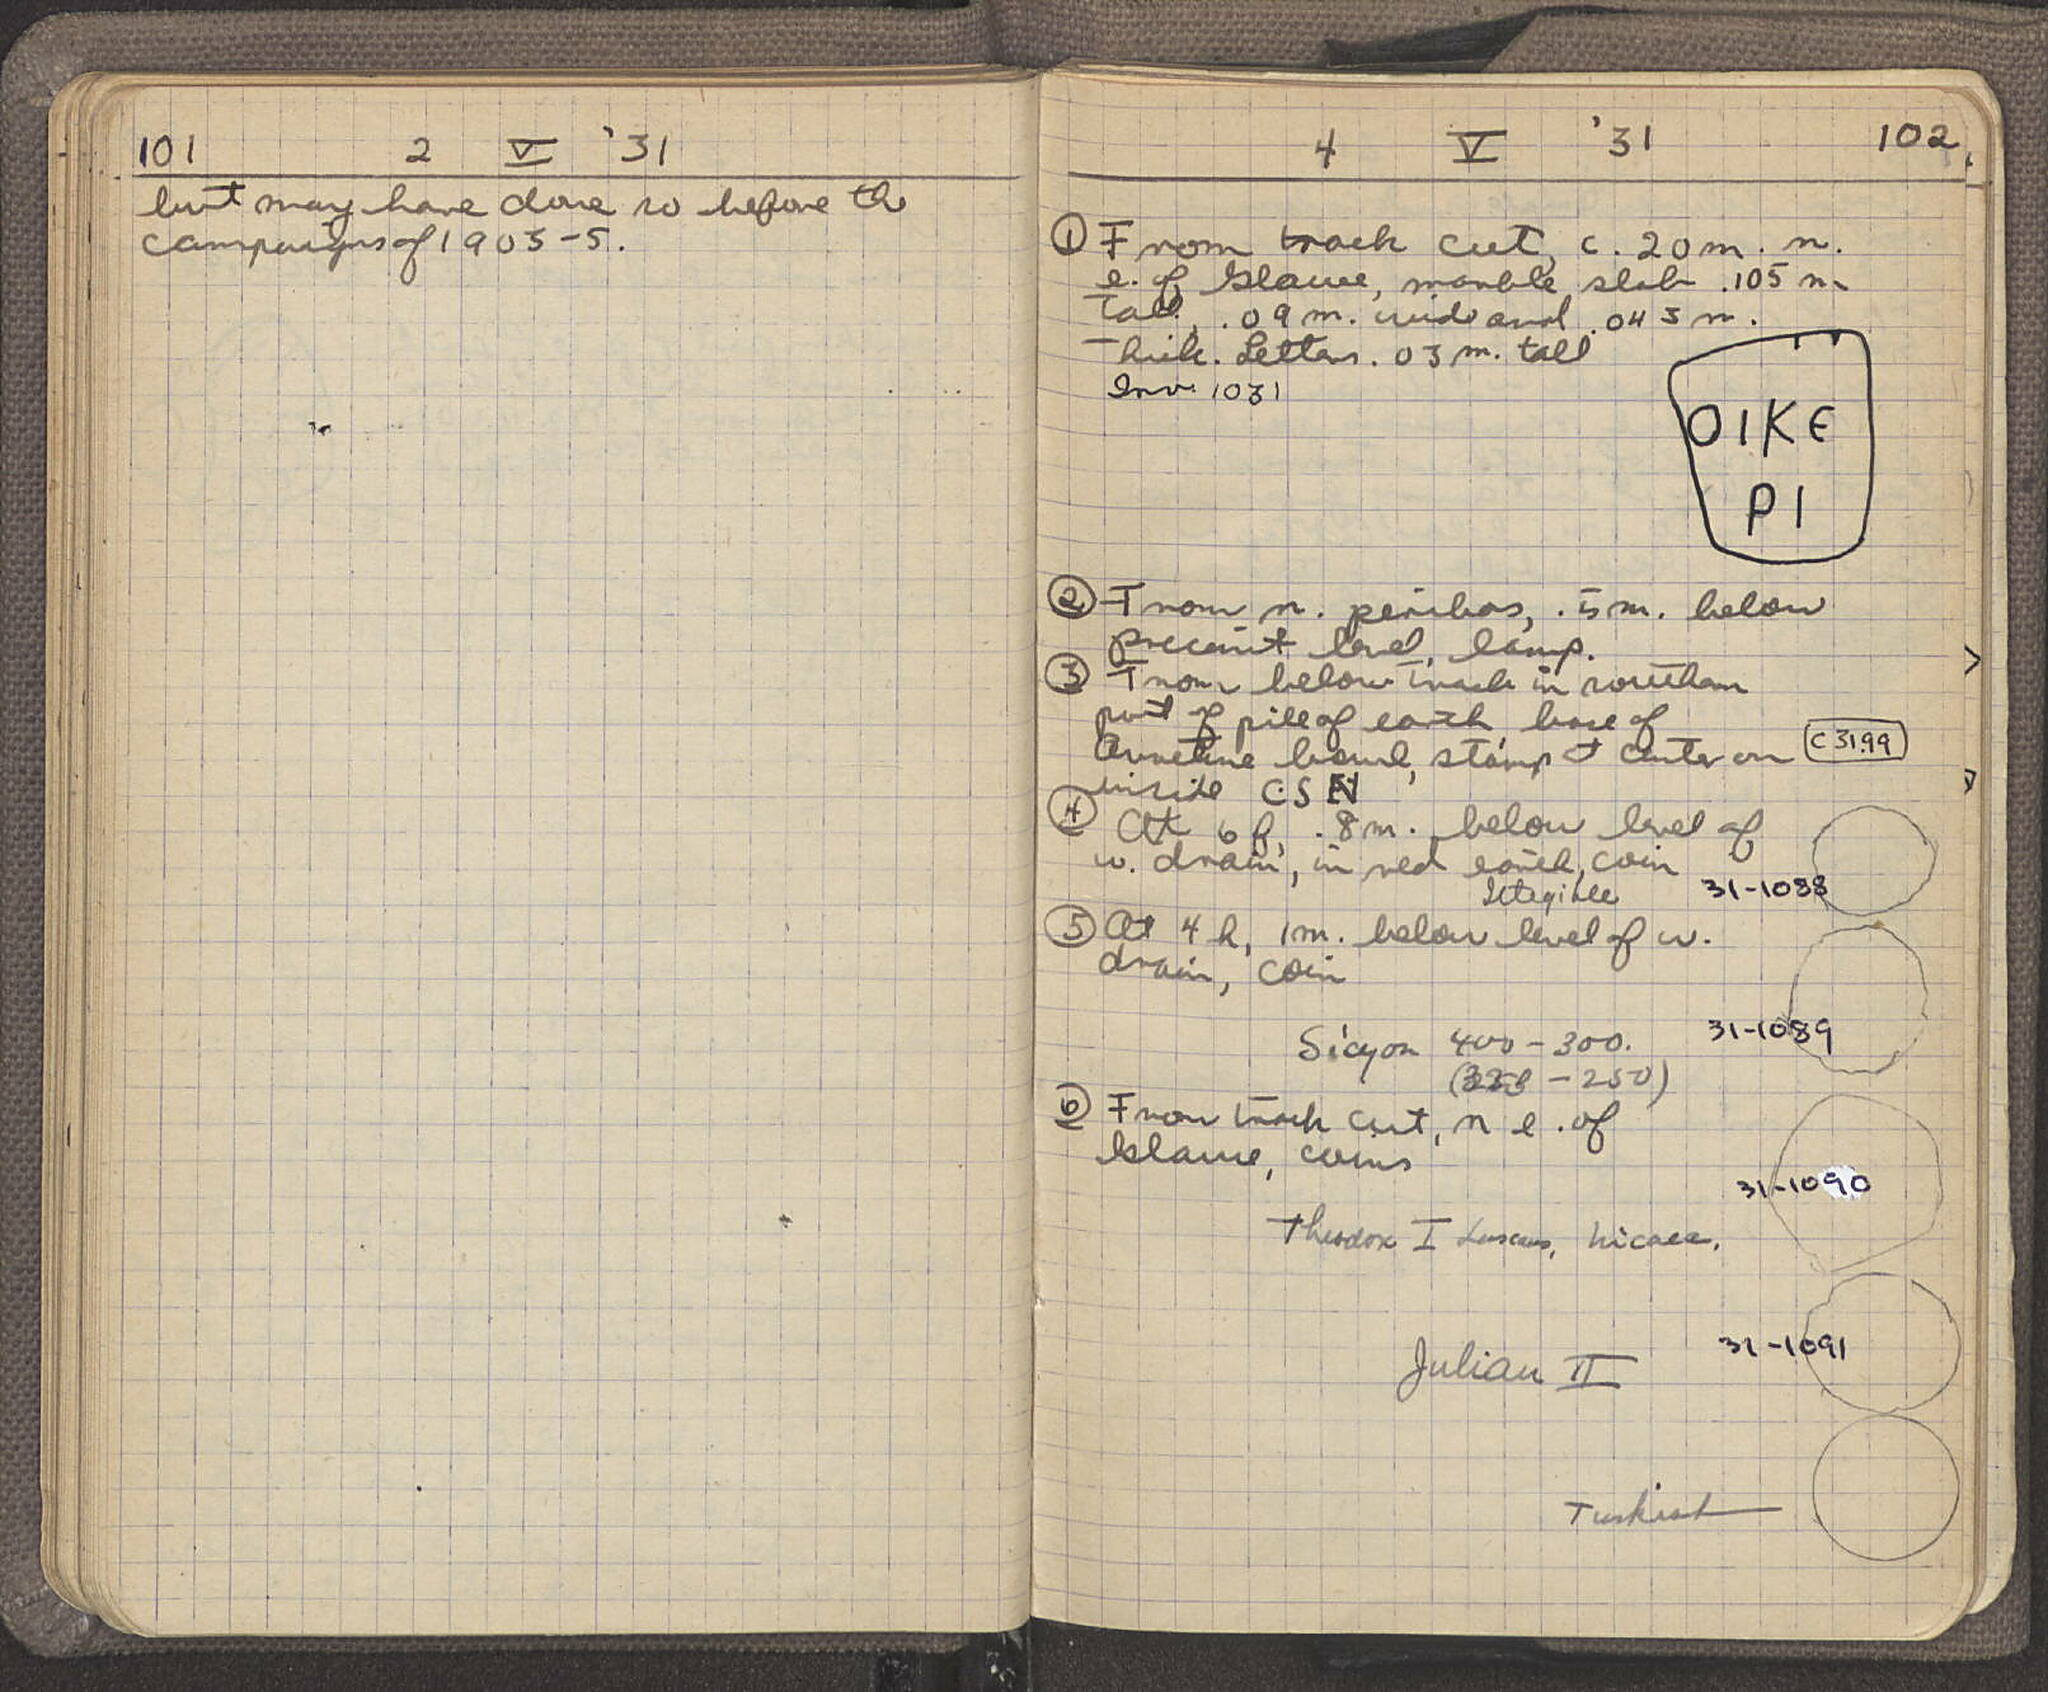 101 2 V '31
but may have done so before the
campaigns of 1903-5.
4 V '31 102
① From track cut, c. 20 m. n.
e. of Glauce, marble slab .105 m.
tall, .09 m. wide and .043 m.
thick. Letters .03 m. tall
Inv. 1031
OIKE
PI
② From n. peribos, .5 m. below
precinct level, lamp.
③ From below track in southern
part of pile of earth, base of
Arretine bowl, stamp at center on
inside CSN
C 31.99
④ At 6 f, .8 m. below level of
w. drain, in red earth, coin
Illegible 31-1088
⑤ At 4 h, 1 m. below level of w.
drain, coin
31-1089
Sicyon 400-300.
( -250)
⑥ From track cut, n e. of
Glauce, coins
31-1090
Theodore I Lascaris, Nicaea.
31-1091
Julian II
Turkish